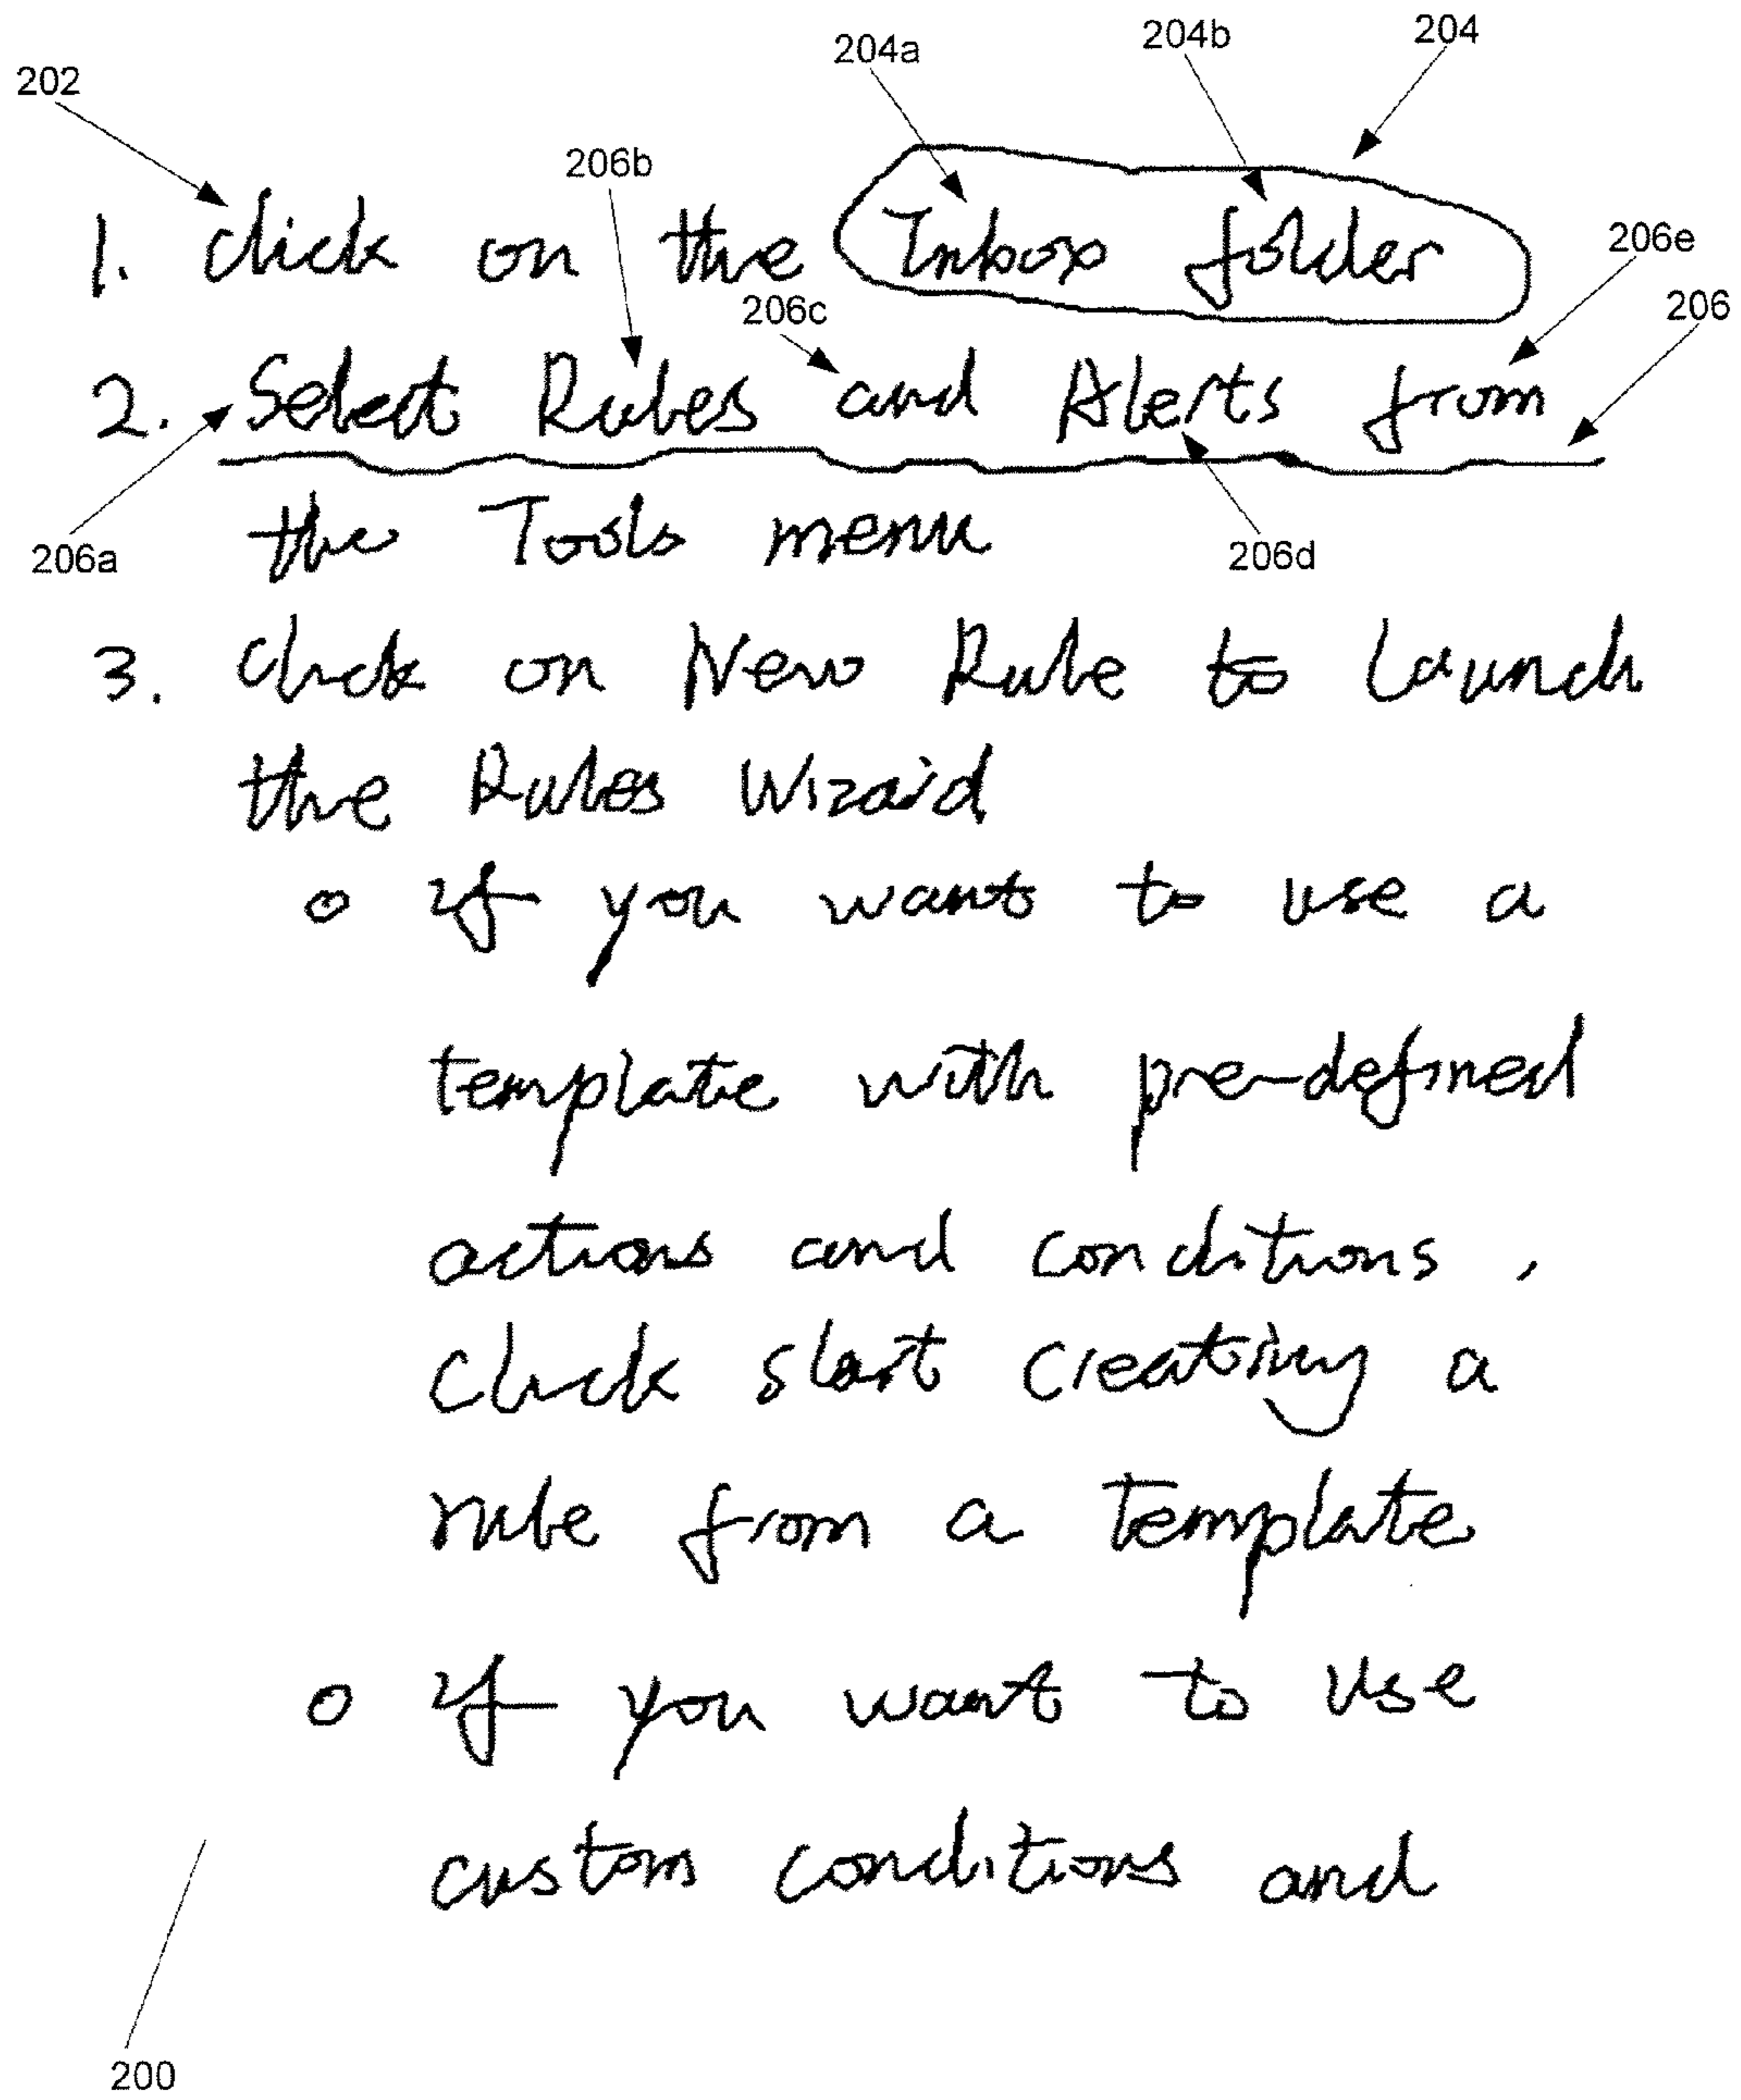 204a 204b 204
202
206b
1. click on the Inbox folder
206e
206c 206
2. Select Rules and Alerts from
206a 206d
the Tools menu
3. click on New Rule to Launch
the Rules Wizard
o if you want to use a
template with pre-defined
actions and conditions,
click start creating a
rule from a template
o if you want to use
custom conditions and
200